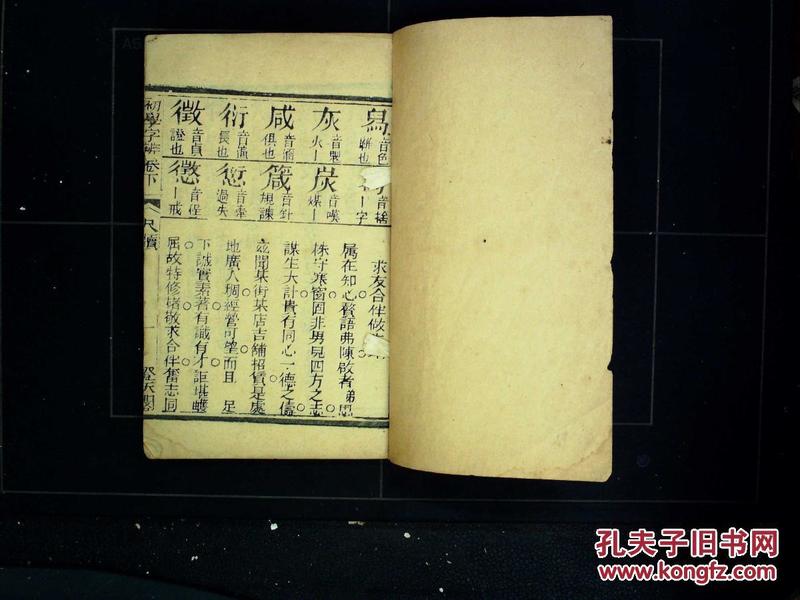 灰 火一
炭 音嘆 煤一
咸 音涵 俱也
箴 音針 規諫
衍 音演 長也
愆 音牽 過失
徵 音貞 證也
懲 音程 一戒
求友合伴做
属在知心贅語弗陳啟者弟思
株守寒窗固非男兒四方之志
謀生大計貴有同心一德之儔
茲聞某街某店吉鋪招賃是處
地廣人稠經營可望而且足
下誠實素著有識有才詎堪
屈故特修緒敬求合伴奮志同
初學字辨卷下 尺牘 一 登天閣
孔夫子旧书网
www.kongfz.com